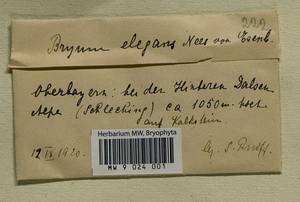 222
Bryum elegans Nees von Esenb.
Oberbayern: bei der Hinteren Dalsen
Alpe (Schleching) ca 1050m. hoch
auf Kalkstein.
12 IX 1920.
Herbarium MW, Bryophyta
MW 9 024 001
lg.